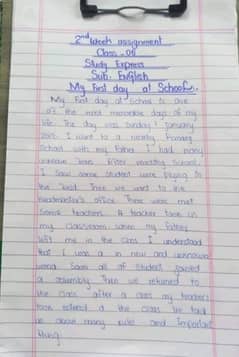 2nd week assignment
Class - 09
Study Express
Sub: English
My First day at School.
My First day at School is one
of the most memorable days of my
life. The day was Sunday 1 January
I went to a nearby Primary
School with my father I had many
unknown fears After reaching School.
I saw some student were playing in
the field Then we went to the
headmaster's office There were met
Some teachers. A teacher took us
my classroom when my father
left me in the class I understood
that I was a in new and unknown
world Soon all of student joined
a assembly Then we returned to
the class after a class my teachers
the class He told
us about many rules and important
thing.